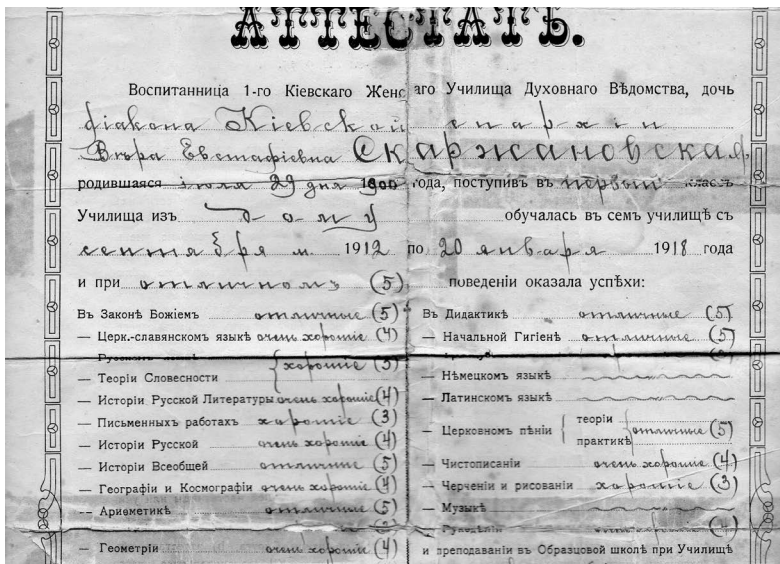 АТТЕСТАТЪ.
Воспитанница 1-го Кіевскаго Женскаго Училища Духовнаго Вѣдомства, дочь
діакона Кіевской епархіи
Вѣра Евстафіевна Скаржановская,
родившаяся іюля 29 дня 1900 года, поступивъ въ первый классъ
Училища изъ дому обучалась въ семъ училищѣ съ
сентября м. 1912 по 20 января 1918 года
и при отличномъ (5) поведеніи оказала успѣхи:
Въ Законѣ Божіемъ отличные (5)
— Церк.-славянскомъ языкѣ очень хорошіе (4)
— Русскомъ языкѣ
хорошіе (3)
— Теоріи Словесности
— Исторіи Русской Литературы очень хорошіе (4)
— Письменныхъ работахъ хорошіе (3)
— Исторіи Русской очень хорошіе (4)
— Исторіи Всеобщей отличные (5)
— Географіи и Космографіи очень хорошіе (4)
-- Ариѳметикѣ отличные (5)
— Геометріи очень хорошіе (4)
Въ Дидактикѣ отличные (5)
— Начальной Гигіенѣ отличные (5)
— Нѣмецкомъ языкѣ
— Латинскомъ языкѣ
— Церковномъ пѣніи теоріи практикѣ отличные (5)
— Чистописаніи очень хорошіе (4)
— Черченіи и рисованіи хорошіе (3)
— Музыкѣ
— Рукодѣліи (4)
и преподаваніи въ Образцовой школѣ при Училищѣ